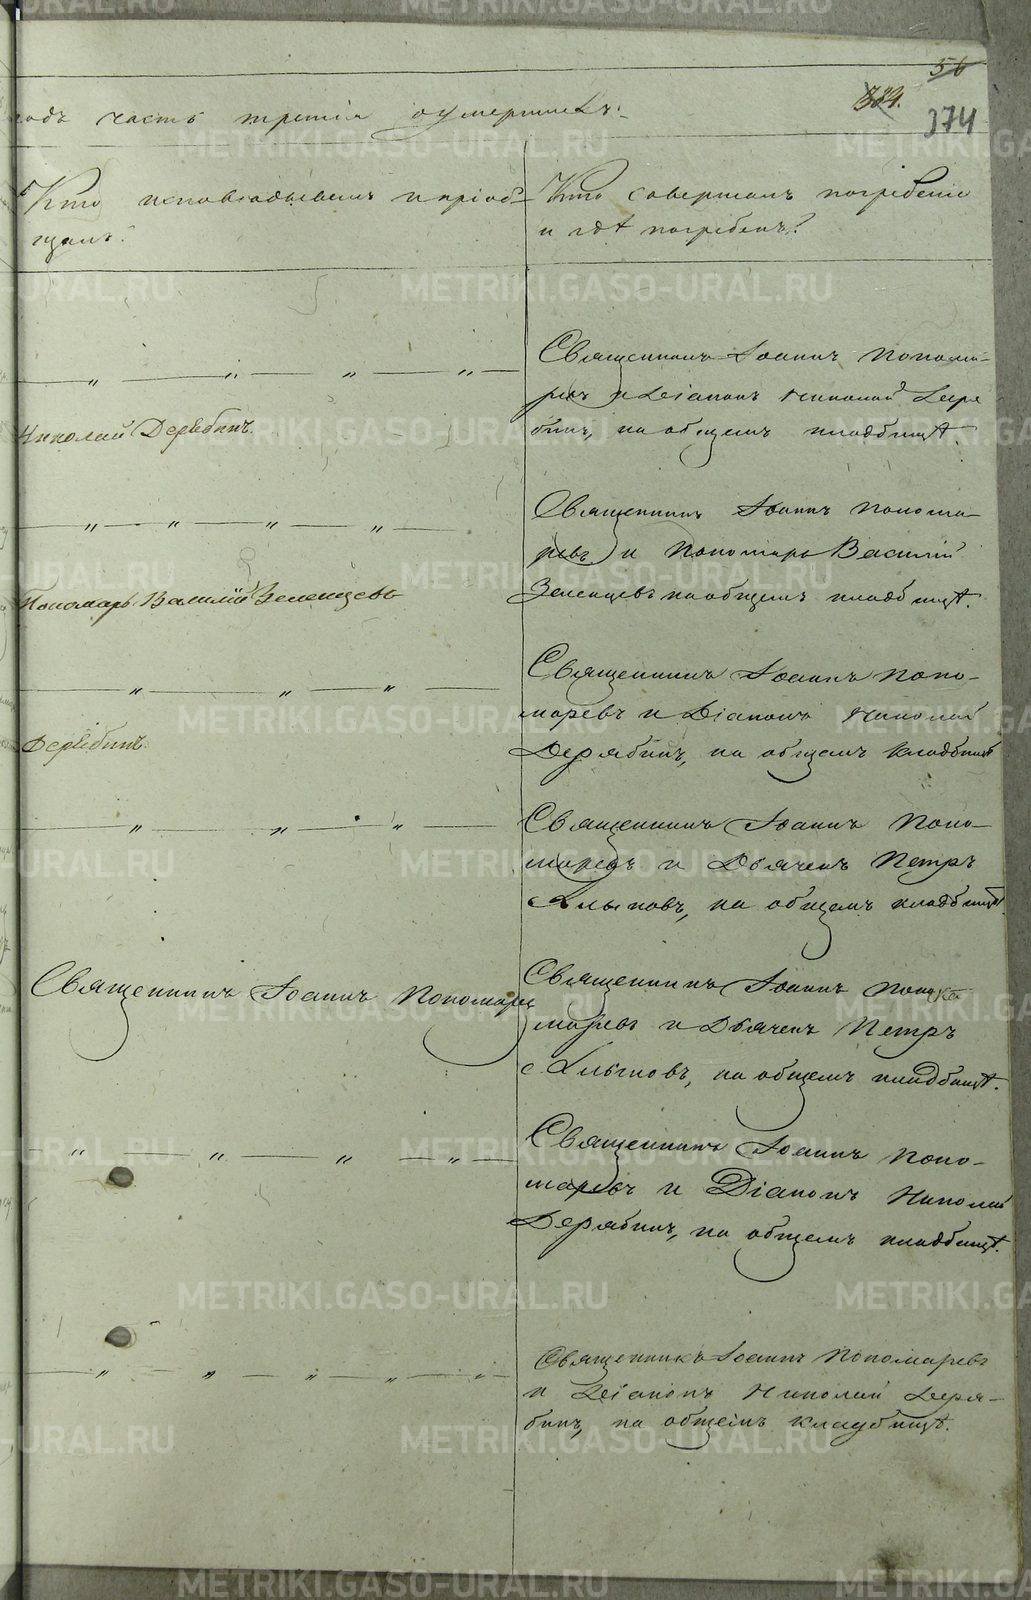 56
384.
374
годъ часть третія оумершихъ:
Кто исповѣдывалъ и пріоб-
щалъ?
Кто совершалъ погребеніе
и гдѣ погребенъ?
Священникъ Іоаннъ Понома-
ревъ и Діаконъ Николай Деря
бинъ, на общемъ кладбищѣ.
Николай Дерябинъ
Священникъ Іоаннъ Понома-
ревъ и Пономарь Василій
Зеленцевъ на общемъ кладбищѣ.
Пономарь Василій Зеленцевъ
Священникъ Іоаннъ Поно-
маревъ и Діаконъ Николай
Дерябинъ, на общемъ кладбищѣ
Дерябинъ.
Священникъ Іоаннъ Поно-
маревъ и Дьячекъ Петръ
на общемъ кладбищѣ.
Священникъ Іоаннъ Пономаре
Священникъ Іоаннъ Поно
маревъ и Дьячекъ Петръ
на общемъ кладбищѣ.
Священникъ Іоаннъ Поно-
маревъ и Діаконъ Николай
Дерябинъ, на общемъ кладбищѣ.
Священникъ Іоаннъ Пономаревъ
и Діаконъ Николай Деря-
бинъ, на общемъ кладбищѣ.
METRIKI.GASO-URAL.RU